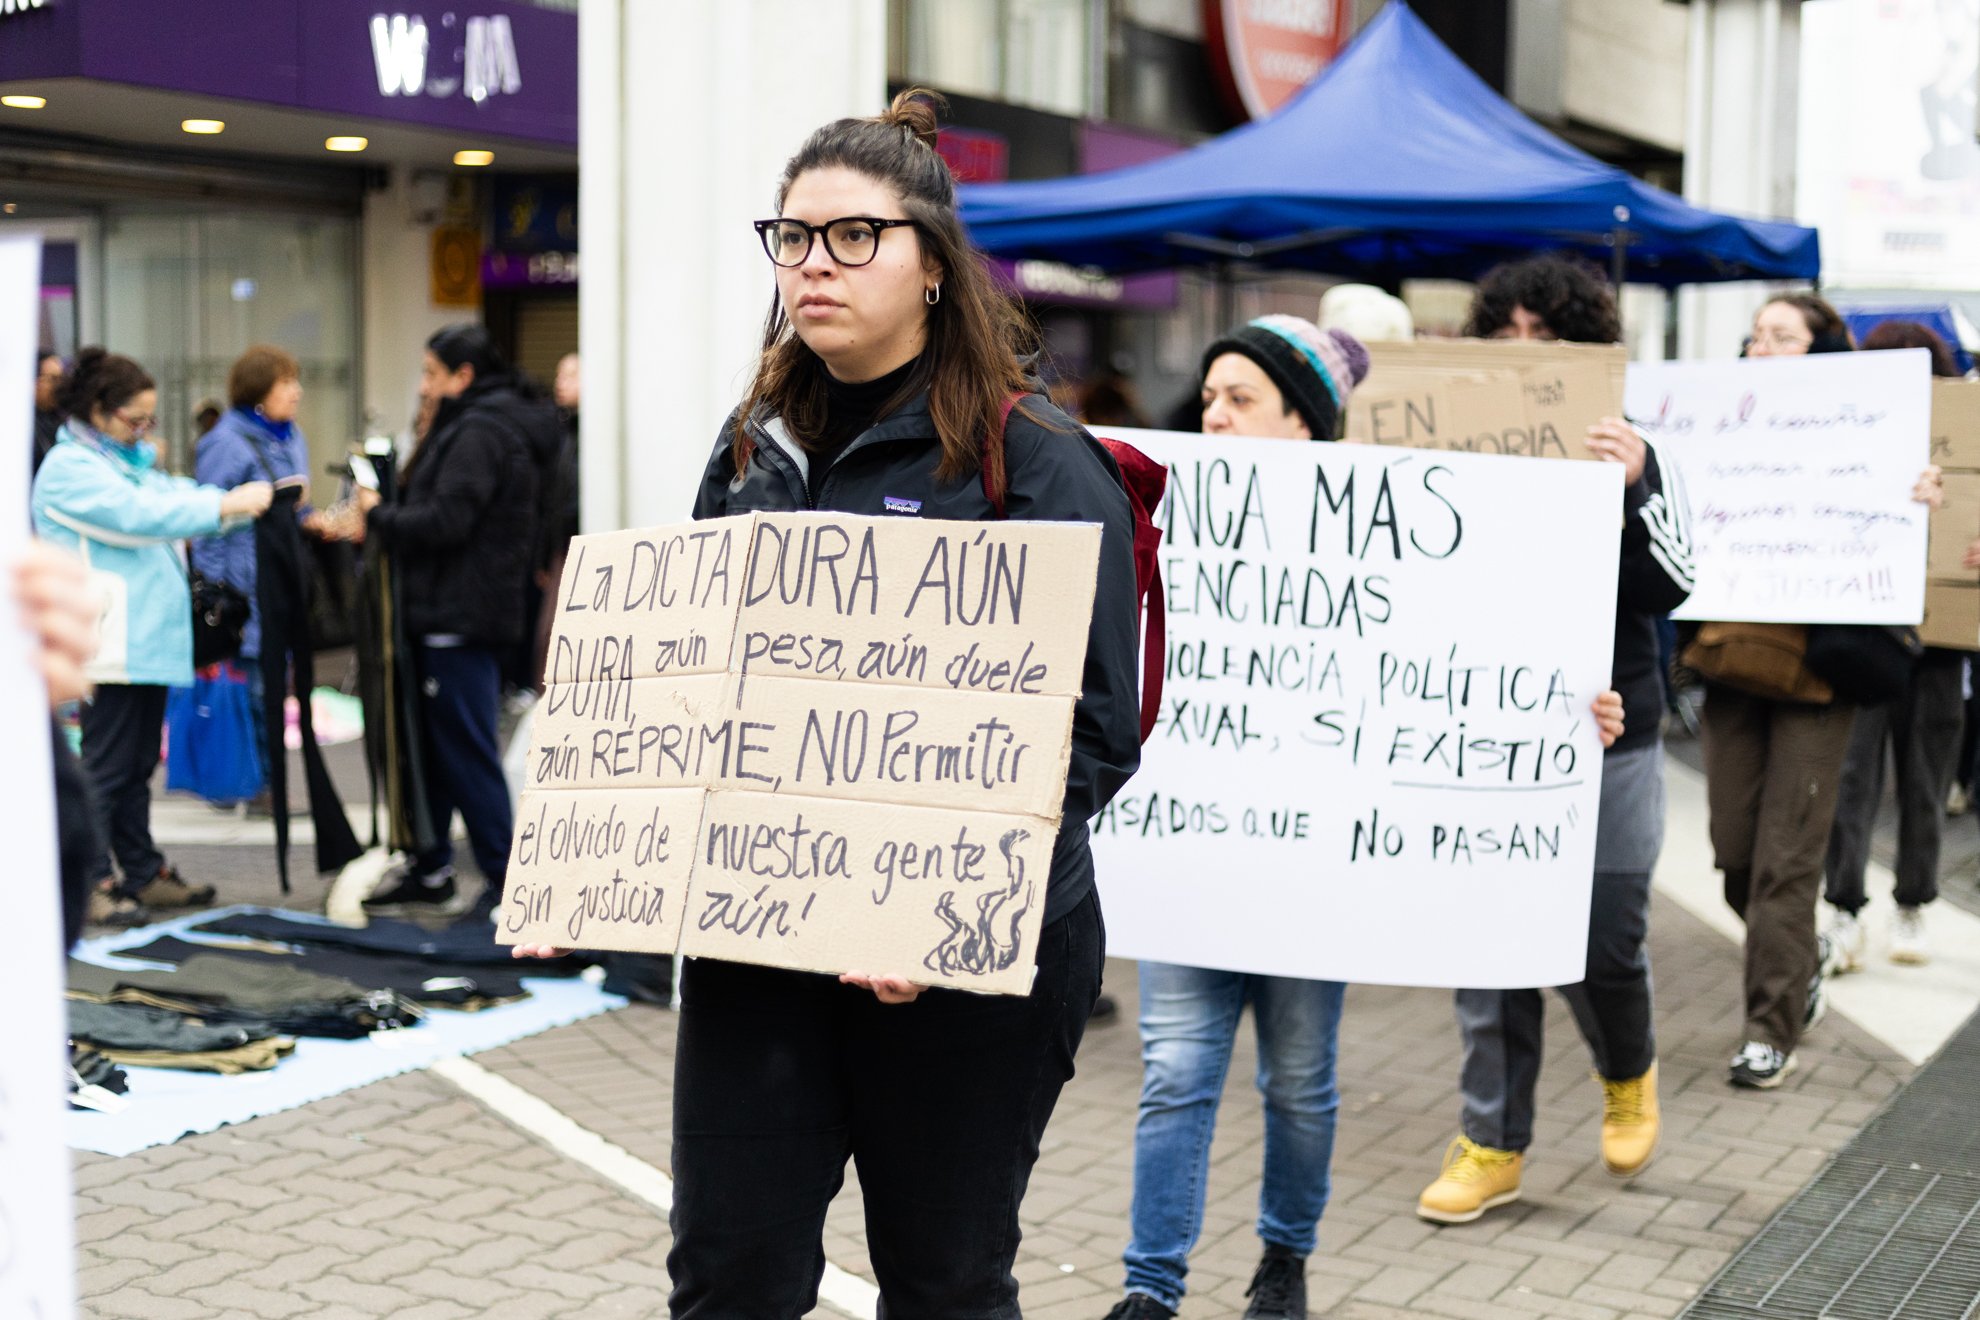 WOM
patagonia
La DICTADURA AÚN
DURA, aún pesa, aún duele
aún REPRIME, NO Permitir
el olvido de nuestra gente
sin justicia aún!
NCA MÁS
ENCIADAS
IOLENCIA POLÍTICA
EXUAL, SÍ EXISTIÓ
ASADOS QUE NO PASAN"
EN
MORIA
el cariño
REPARACIÓN
Y JUSTA!!!